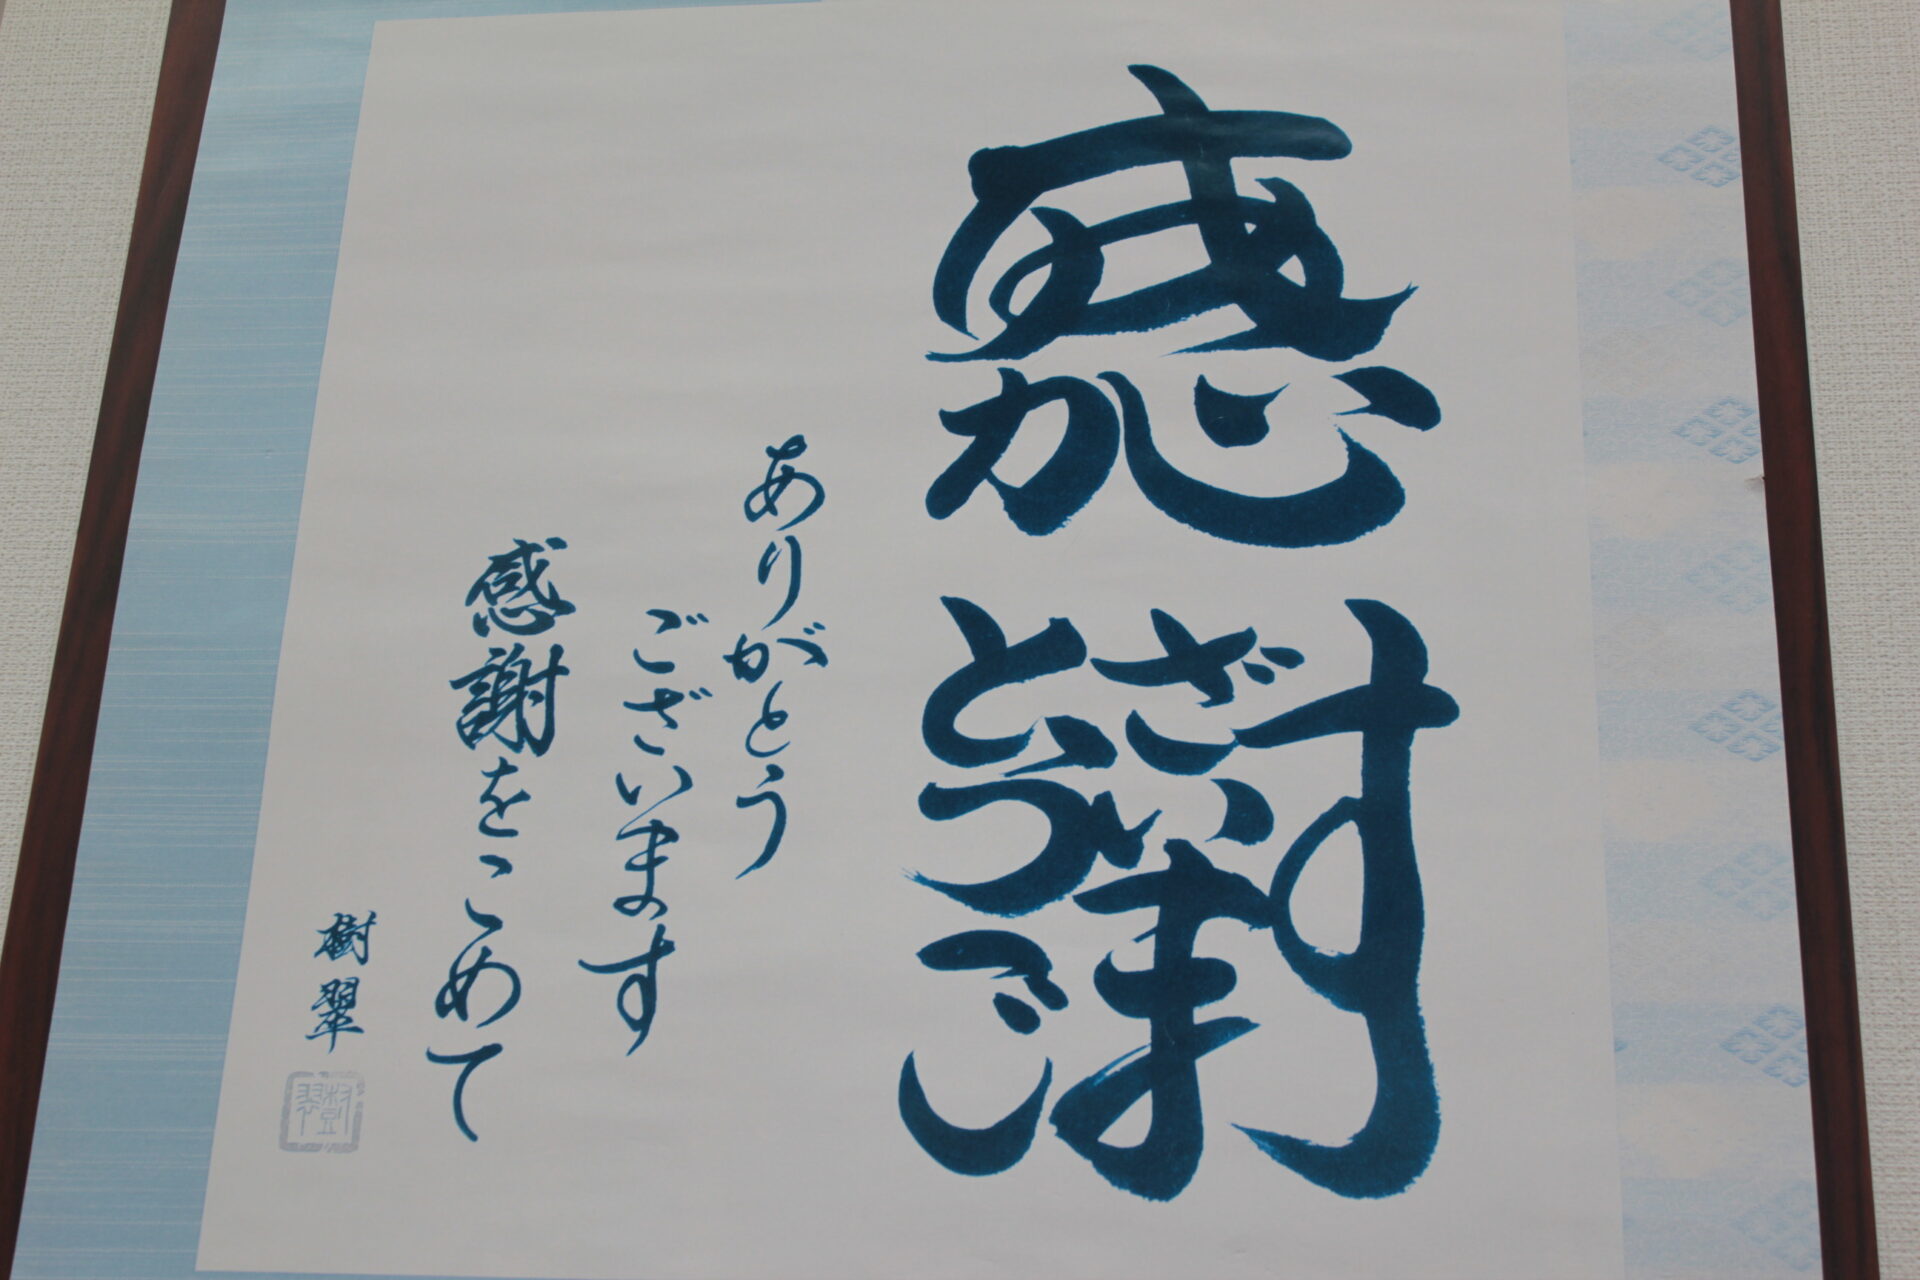 感謝
ありがとう
ございます
感謝をこめて
樹翠
樹翠